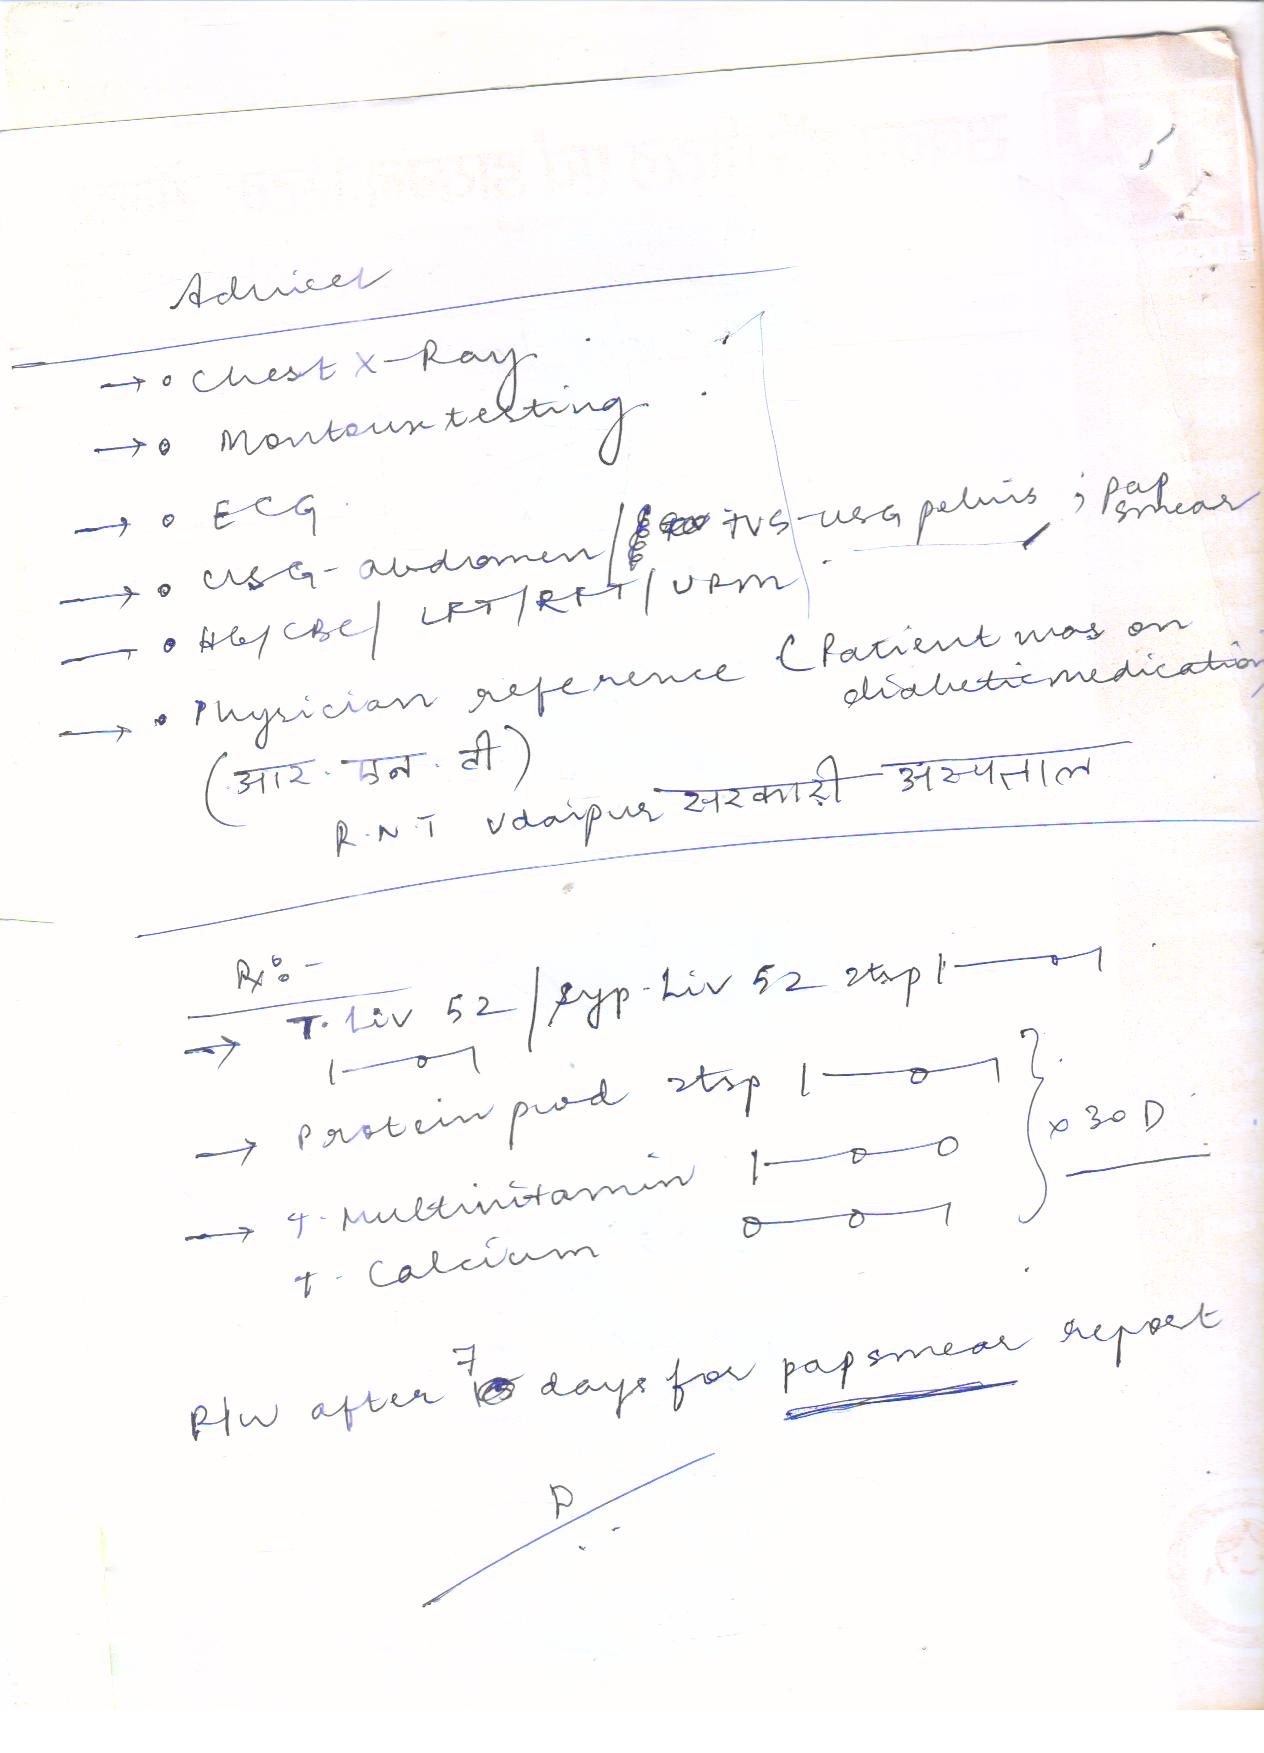 Advice
→ • Chest X-Ray
→ • Montoux testing
→ • ECG
→ • USG-abdomen / TVS-USG pelvis ; pap smear
→ • HG/CBC/ LFT/RFT/URM
→ • Physician reference (Patient was on
diabetic medication)
(आर. एन. टी)
R.N.T Udaipur सरकारी अस्पताल
Rx:-
→ T. Liv 52 / syp. Liv 52 2tsp 1—0—1
1—0—1
→ Protein pwd 2tsp 1—0—1
→ T. Multivitamin 1—0—0
T. Calcium 0—0—1
} x 30 D
R/w after 7 days for papsmear report